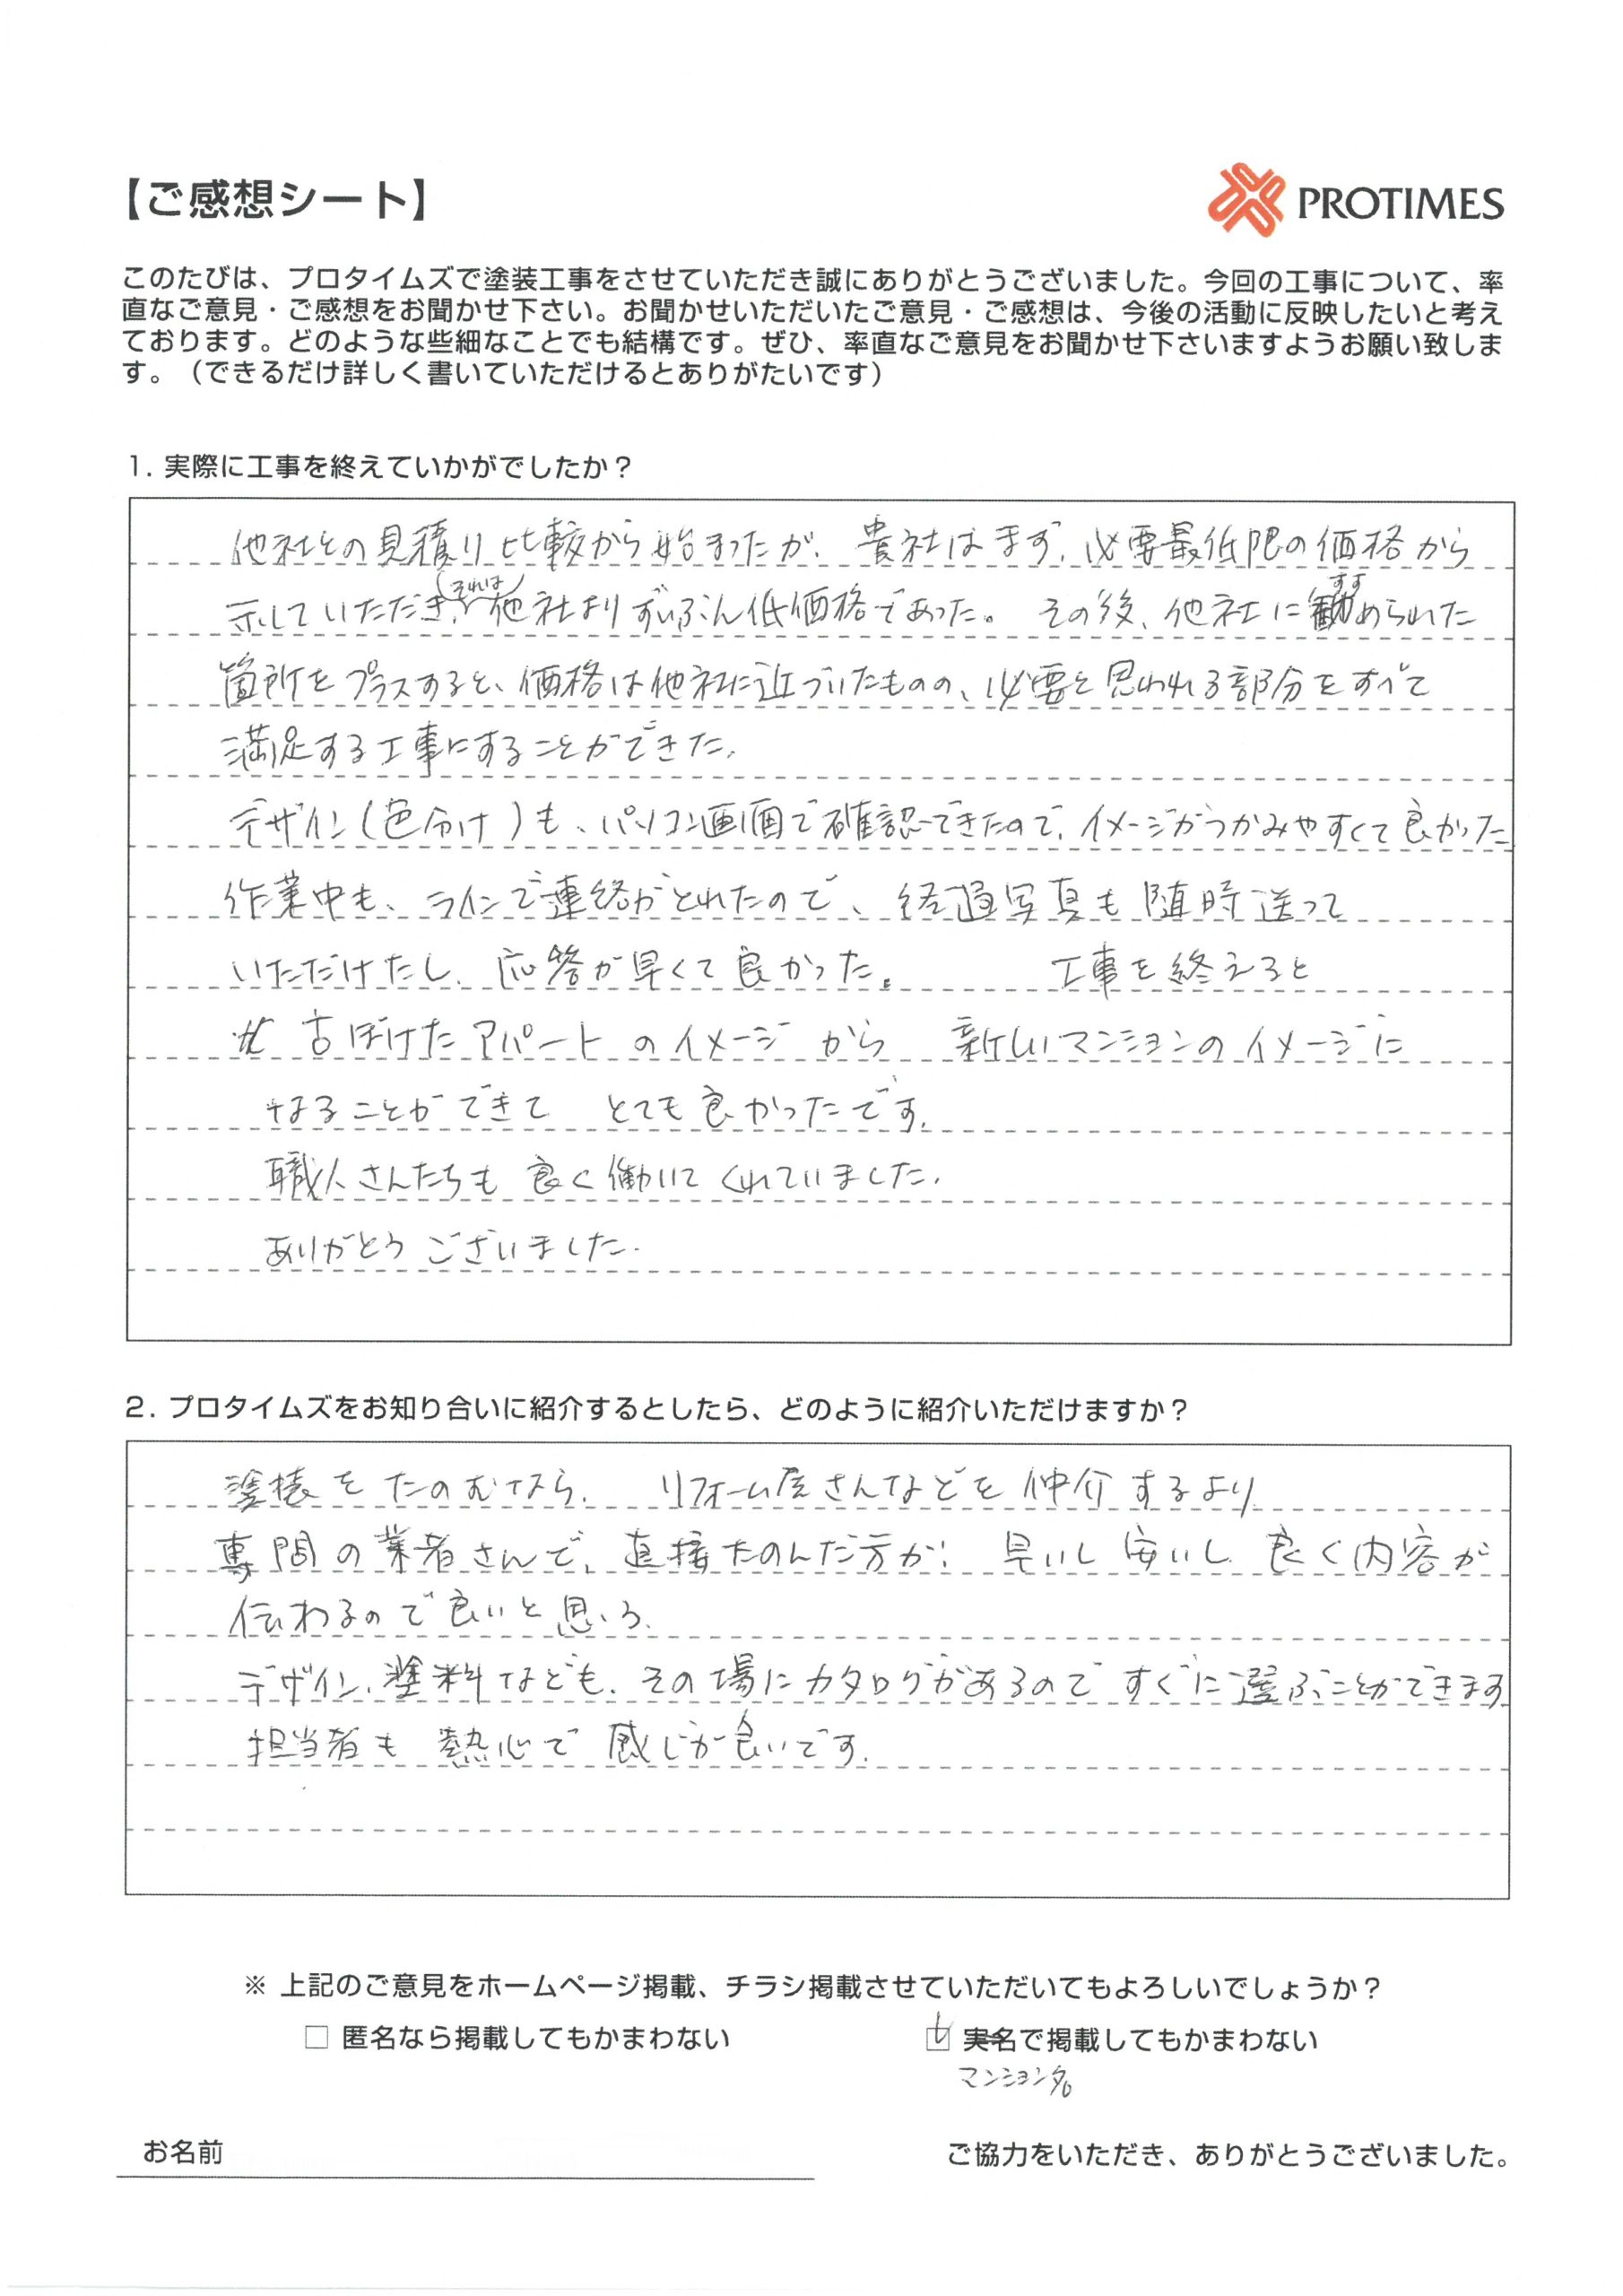 【ご感想シート】
PROTIMES
このたびは、プロタイムズで塗装工事をさせていただき誠にありがとうございました。今回の工事について、率
直なご意見・ご感想をお聞かせ下さい。お聞かせいただいたご意見・ご感想は、今後の活動に反映したいと考え
ております。どのような些細なことでも結構です。ぜひ、率直なご意見をお聞かせ下さいますようお願い致しま
す。（できるだけ詳しく書いていただけるとありがたいです）
1. 実際に工事を終えていかがでしたか？
他社との見積り比較から始まったが、貴社はまず、必要最低限の価格から
示していただき、それは他社よりずいぶん低価格であった。その後、他社に勧められた
すす
箇所をプラスすると、価格は他社に近づいたものの、必要と思われる部分をすべて
満足する工事にすることができた。
デザイン（色分け）も、パソコン画面で確認できたので、イメージがつかみやすくて良かった
作業中も、ラインで連絡がとれたので、経過写真も随時送って
いただけたし、応答が早くて良かった。 工事を終えると
古ぼけたアパートのイメージから 新しいマンションのイメージに
なることができて とても良かったです。
職人さんたちも良く働いてくれていました。
ありがとうございました。
2. プロタイムズをお知り合いに紹介するとしたら、どのように紹介いただけますか？
塗装をたのむなら、リフォーム屋さんなどを仲介するより
専門の業者さんで、直接たのんだ方が！早いし安いし良く内容が
伝わるので良いと思いる。
デザイン、塗料なども、その場にカタログがあるのですぐに選ぶことができます
担当者も熱心で感じが良いです。
※ 上記のご意見をホームページ掲載、チラシ掲載させていただいてもよろしいでしょうか？
□ 匿名なら掲載してもかまわない
☑ 実名で掲載してもかまわない
マンション名
お名前
ご協力をいただき、ありがとうございました。